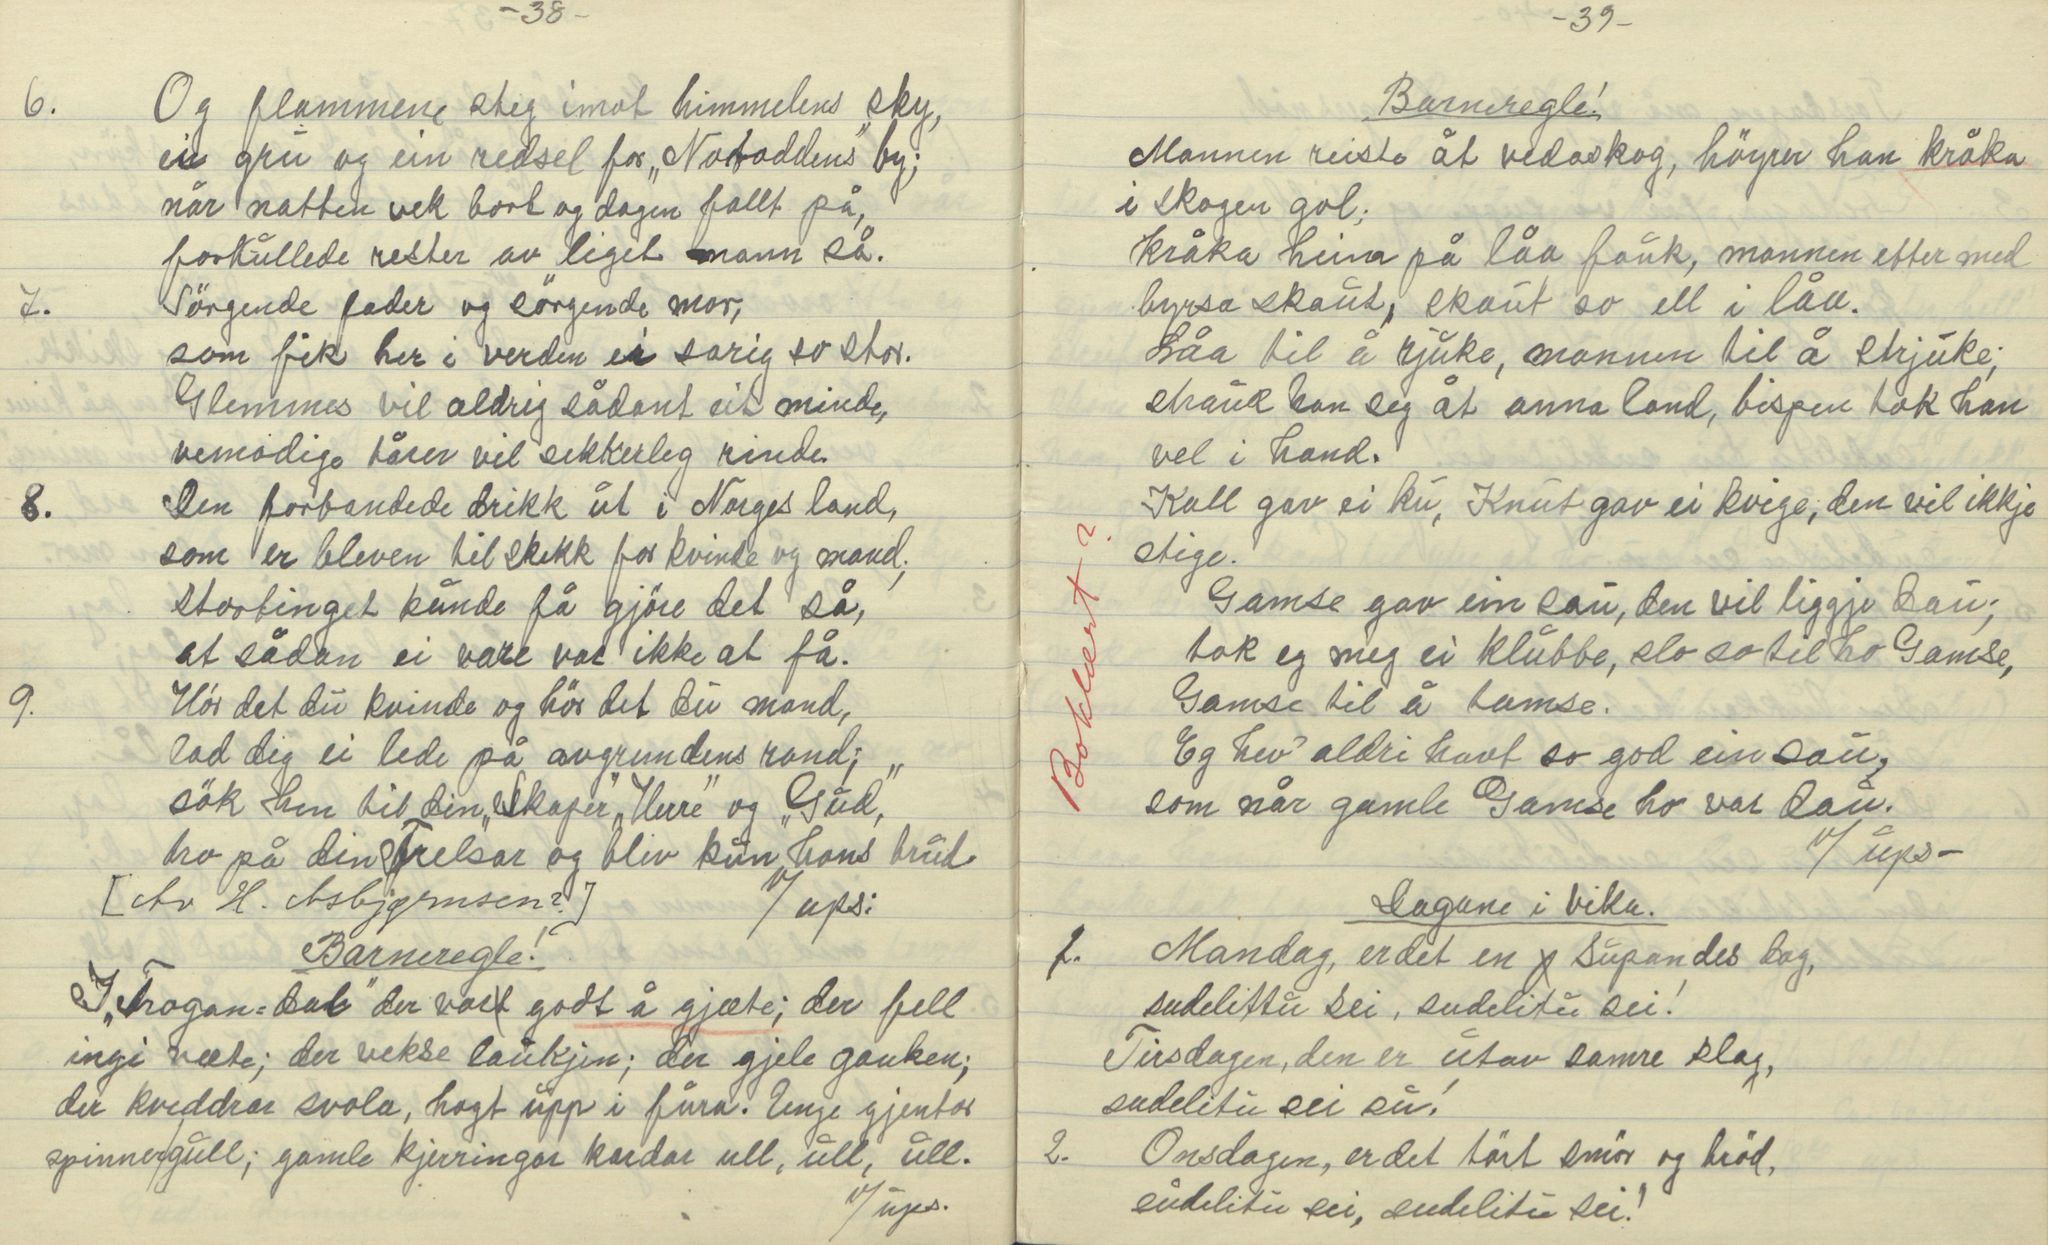 -38-
6. Og flammene steg imot himmelens sky,
ei gru og ein redsel for „Notoddens" by;
når natten vek bort og dagen fallt på,
forkullede rester av liget mann så.
7. Sörgende fader og sörgende mor,
som fik her i verden ei sorig so stor.
Glemmes vil aldrig sådant eit minde,
vemodige tårer vil sekkerleg rinde.
8. Den forbandede drikk ut i Norges land,
som er bleven til skekk for kvinde og mand;
stortinget kunde få gjöre det så,
at sådan ei vare var ikke at få.
9. Hör det du kvinde og hör det du mand,
lad dig ei lede på avgrundens rand;
sök hen til din „Skaper", „Herre" og „Gud",
tro på din Frelsar og bliv kun hans brud.
[Av H. Asbjørnsen?] v/ ups:
Barneregle!
I „Trogan=dal" der vart godt å gjæte; der fell
ingi væte; der vekse laukjen; der gjele gauken;
der kveddrar svola, hogt upp i fura. Unge gjentor
spinner gull; gamle kjerringar kardar ull, ull, ull.
v/ ups.
-39-
Barneregle!
Mannen reiste åt vedaskog, höyrer han kråka
i skogen gol;
kråka heim på låa fauk, mannen etter med
byrsa skaut, skaut so ell i låa.
Låa til å rjuke, mannen til å strjuke;
strauk han seg åt anna land, bispen tok han
vel i hand.
Kall gav ei ku, Knut gav ei kvige, den vil ikkje
stige.
Gamse gav ein sau, den vil liggje dau;
tok eg meg ei klubbe, slo so til ho Gamse,
Gamse til å tamse.
Eg hev' aldri havt so god ein sau,
som når gamle Gamse ho var dau.
v/ ups-
Boklært?
Dagane i vika.
1. Mandag, er det en supandes dag,
sudelittu sei, sudelitu sei!
Tirsdagen, den er utav samre slag,
sudelitu sei su!
2. Onsdagen, er det tört smör og bröd,
sudelitu sei, sudelitu sei!